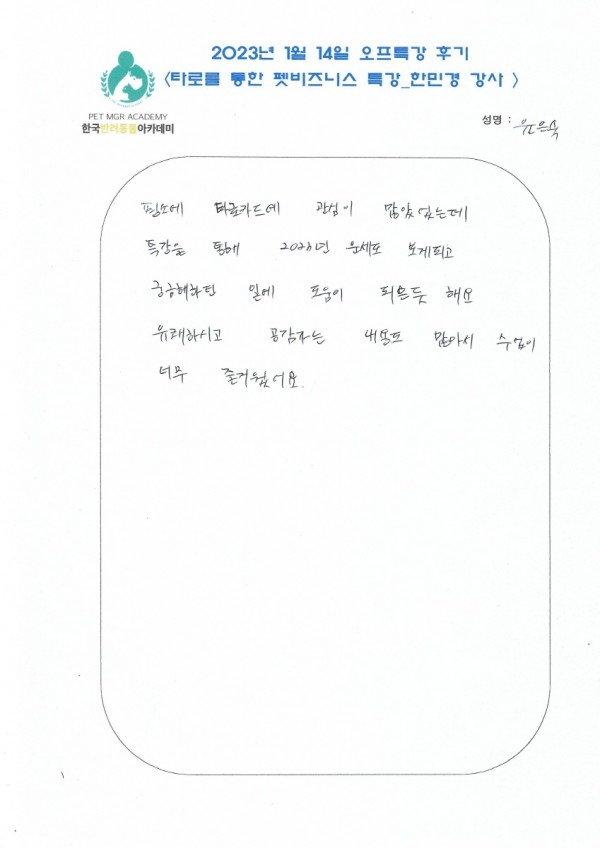 2023년 1월 14일 오프특강 후기
<타로를 통한 펫비즈니스 특강_한민경 강사 >
PET MGR ACADEMY
한국반려동물아카데미
성명 : 윤은숙
평소에 타로카드에 관심이 많았었는데
특강을 통해 2023년 운세도 보게되고
궁금해하던 일에 도움이 되는듯 해요
유쾌하시고 공감가는 내용도 많아서 수업이
너무 즐거웠어요.